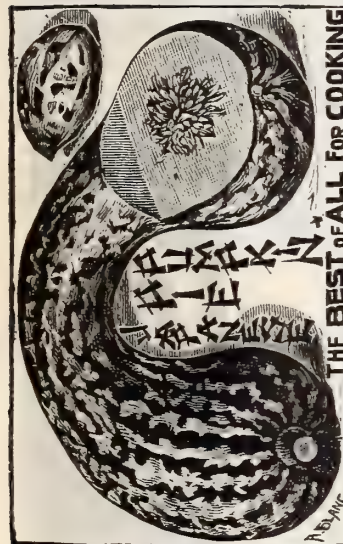 JAPANESE
PIE
PUMPKIN.
THE BEST OF ALL FOR COOKING
A. BLANC